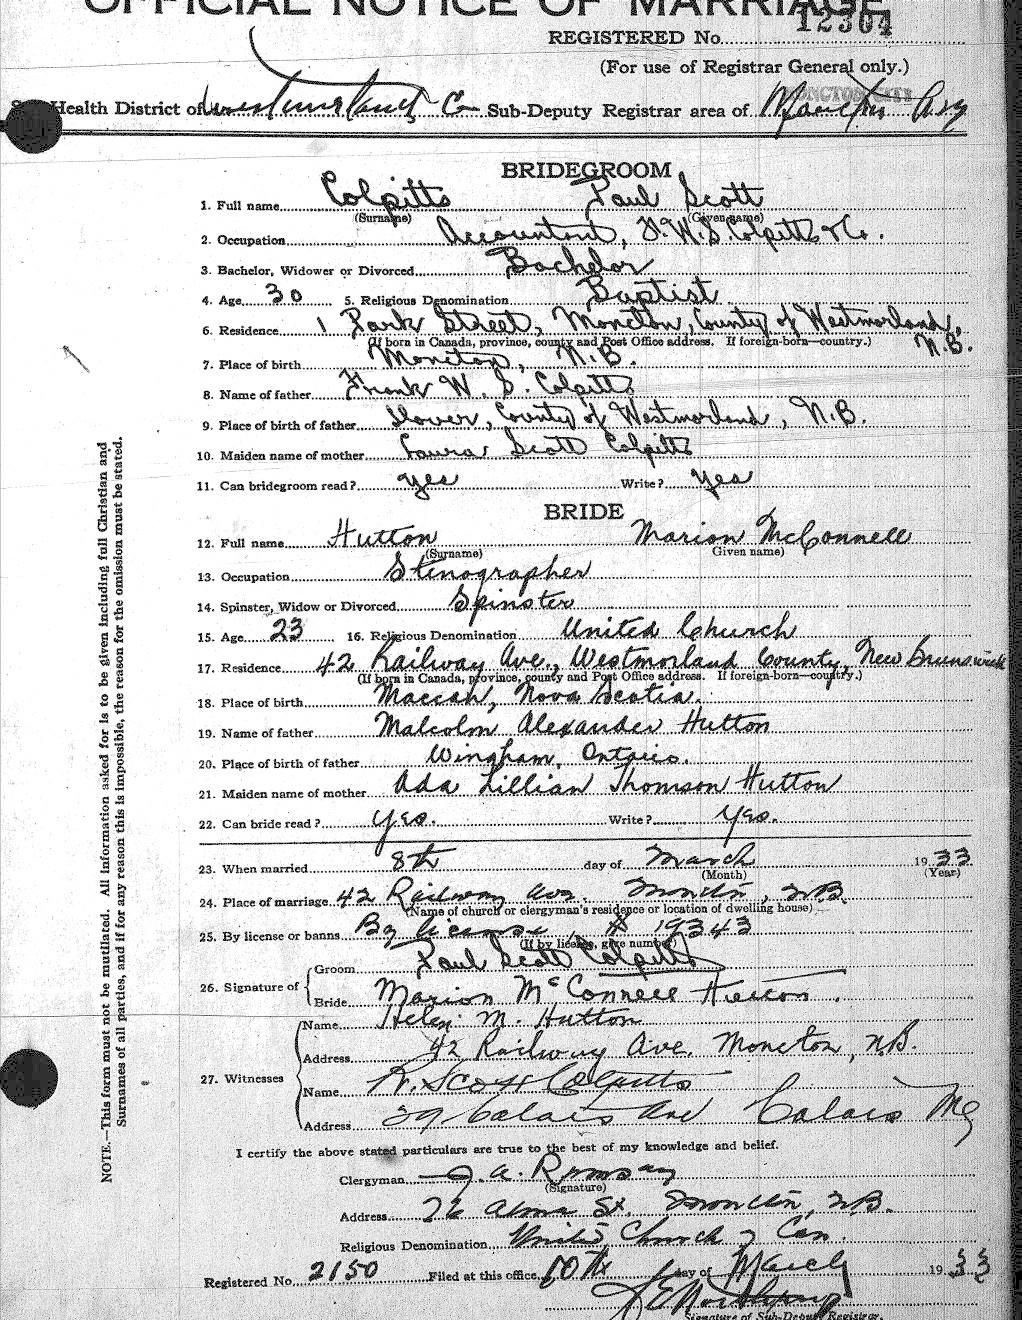 OFFICIAL NOTICE OF MARRIAGE
REGISTERED No. 12304
(For use of Registrar General only.)
Health District of Westmorland Co Sub-Deputy Registrar area of Moncton
BRIDEGROOM
1. Full name Colpitts Paul Scott
(Surname) (Given name)
2. Occupation Accountant, F.W.S. Colpitts & Co.
3. Bachelor, Widower or Divorced Bachelor
4. Age 30 5. Religious Denomination Baptist
6. Residence 1 Park Street, Moncton, County of Westmorland, N.B.
(If born in Canada, province, county and Post Office address. If foreign-born—country.)
7. Place of birth Moncton, N.B.
8. Name of father Frank W. S. Colpitts
9. Place of birth of father County of Westmorland, N.B.
10. Maiden name of mother Laura Scott Colpitts
11. Can bridegroom read? yes Write? Yes
BRIDE
12. Full name Hutton Marion McConnell
(Surname) Given name)
13. Occupation Stenographer
14. Spinster, Widow or Divorced Spinster
15. Age 23 16. Religious Denomination United Church
17. Residence 42 Railway Ave., Westmorland County, New Brunswick
(If born in Canada, province, county and Post Office address. If foreign-born—country.)
18. Place of birth Maccan, Nova Scotia.
19. Name of father Malcolm Alexander Hutton
20. Place of birth of father Wingham, Ontario.
21. Maiden name of mother Ada Lillian Thomson Hutton
22. Can bride read? Yes. Write? Yes.
23. When married 8th day of March 1933
(Month) (Year)
24. Place of marriage 42 Railway Ave. Moncton, N.B.
(Name of church or clergyman's residence or location of dwelling house)
25. By license or banns By license, # 19343
(If by license, give number)
26. Signature of Groom Paul Scott Colpitts
Bride Marion McConnell Hutton.
27. Witnesses Name Helen M. Hutton
Address 42 Railway Ave. Moncton, N.B.
Name R. Scott Colpitts
Address 29 Calais Ave Calais Me
I certify the above stated particulars are true to the best of my knowledge and belief.
Clergyman J. A. Ramsay
(Signature)
Address 76 Alma St. Moncton, N.B.
Religious Denomination United Church of Can.
Registered No. 2150 Filed at this office 10th day of March 1933
Signature of Sub-Deputy Registrar.
NOTE.—This form must not be mutilated. All information asked for is to be given including full Christian and
Surnames of all parties, and if for any reason this is impossible, the reason for the omission must be stated.